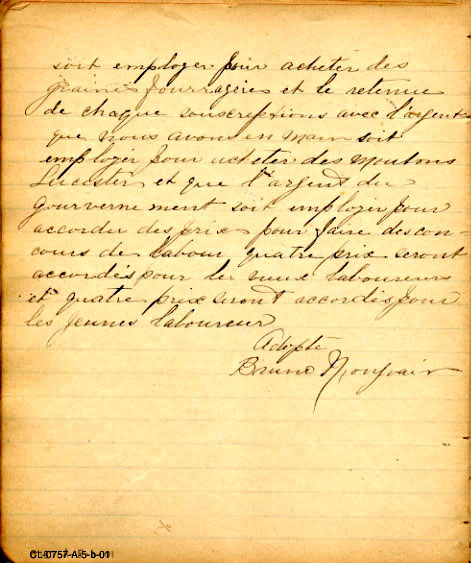 soit employer pour acheter des
graines fourragères et le retenue
de chaque souscriptions avec l'argent
que nous avons en main soit
employer pour acheter des moutons
Leicester et que l'argent du
gourvernement soit employer pour
accorder des prix pour faire des con-
cours de labour quatre prix seront
accordés pour les vieux laboureurs
et quatre prix seront accordés pour
les jeunes laboureur
Adopté
Bruno
CL-0757-A-5-b-01